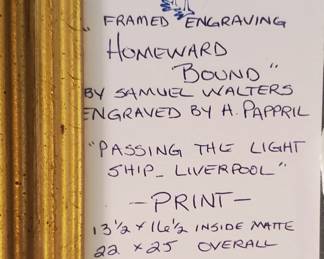 "FRAMED ENGRAVING
HOMEWARD
BOUND"
BY SAMUEL WALTERS
ENGRAVED BY H. PAPPRIL
"PASSING THE LIGHT
SHIP- LIVERPOOL"
- PRINT -
13 1/2 x 16 1/2 INSIDE MATTE
22 x 25 OVERALL